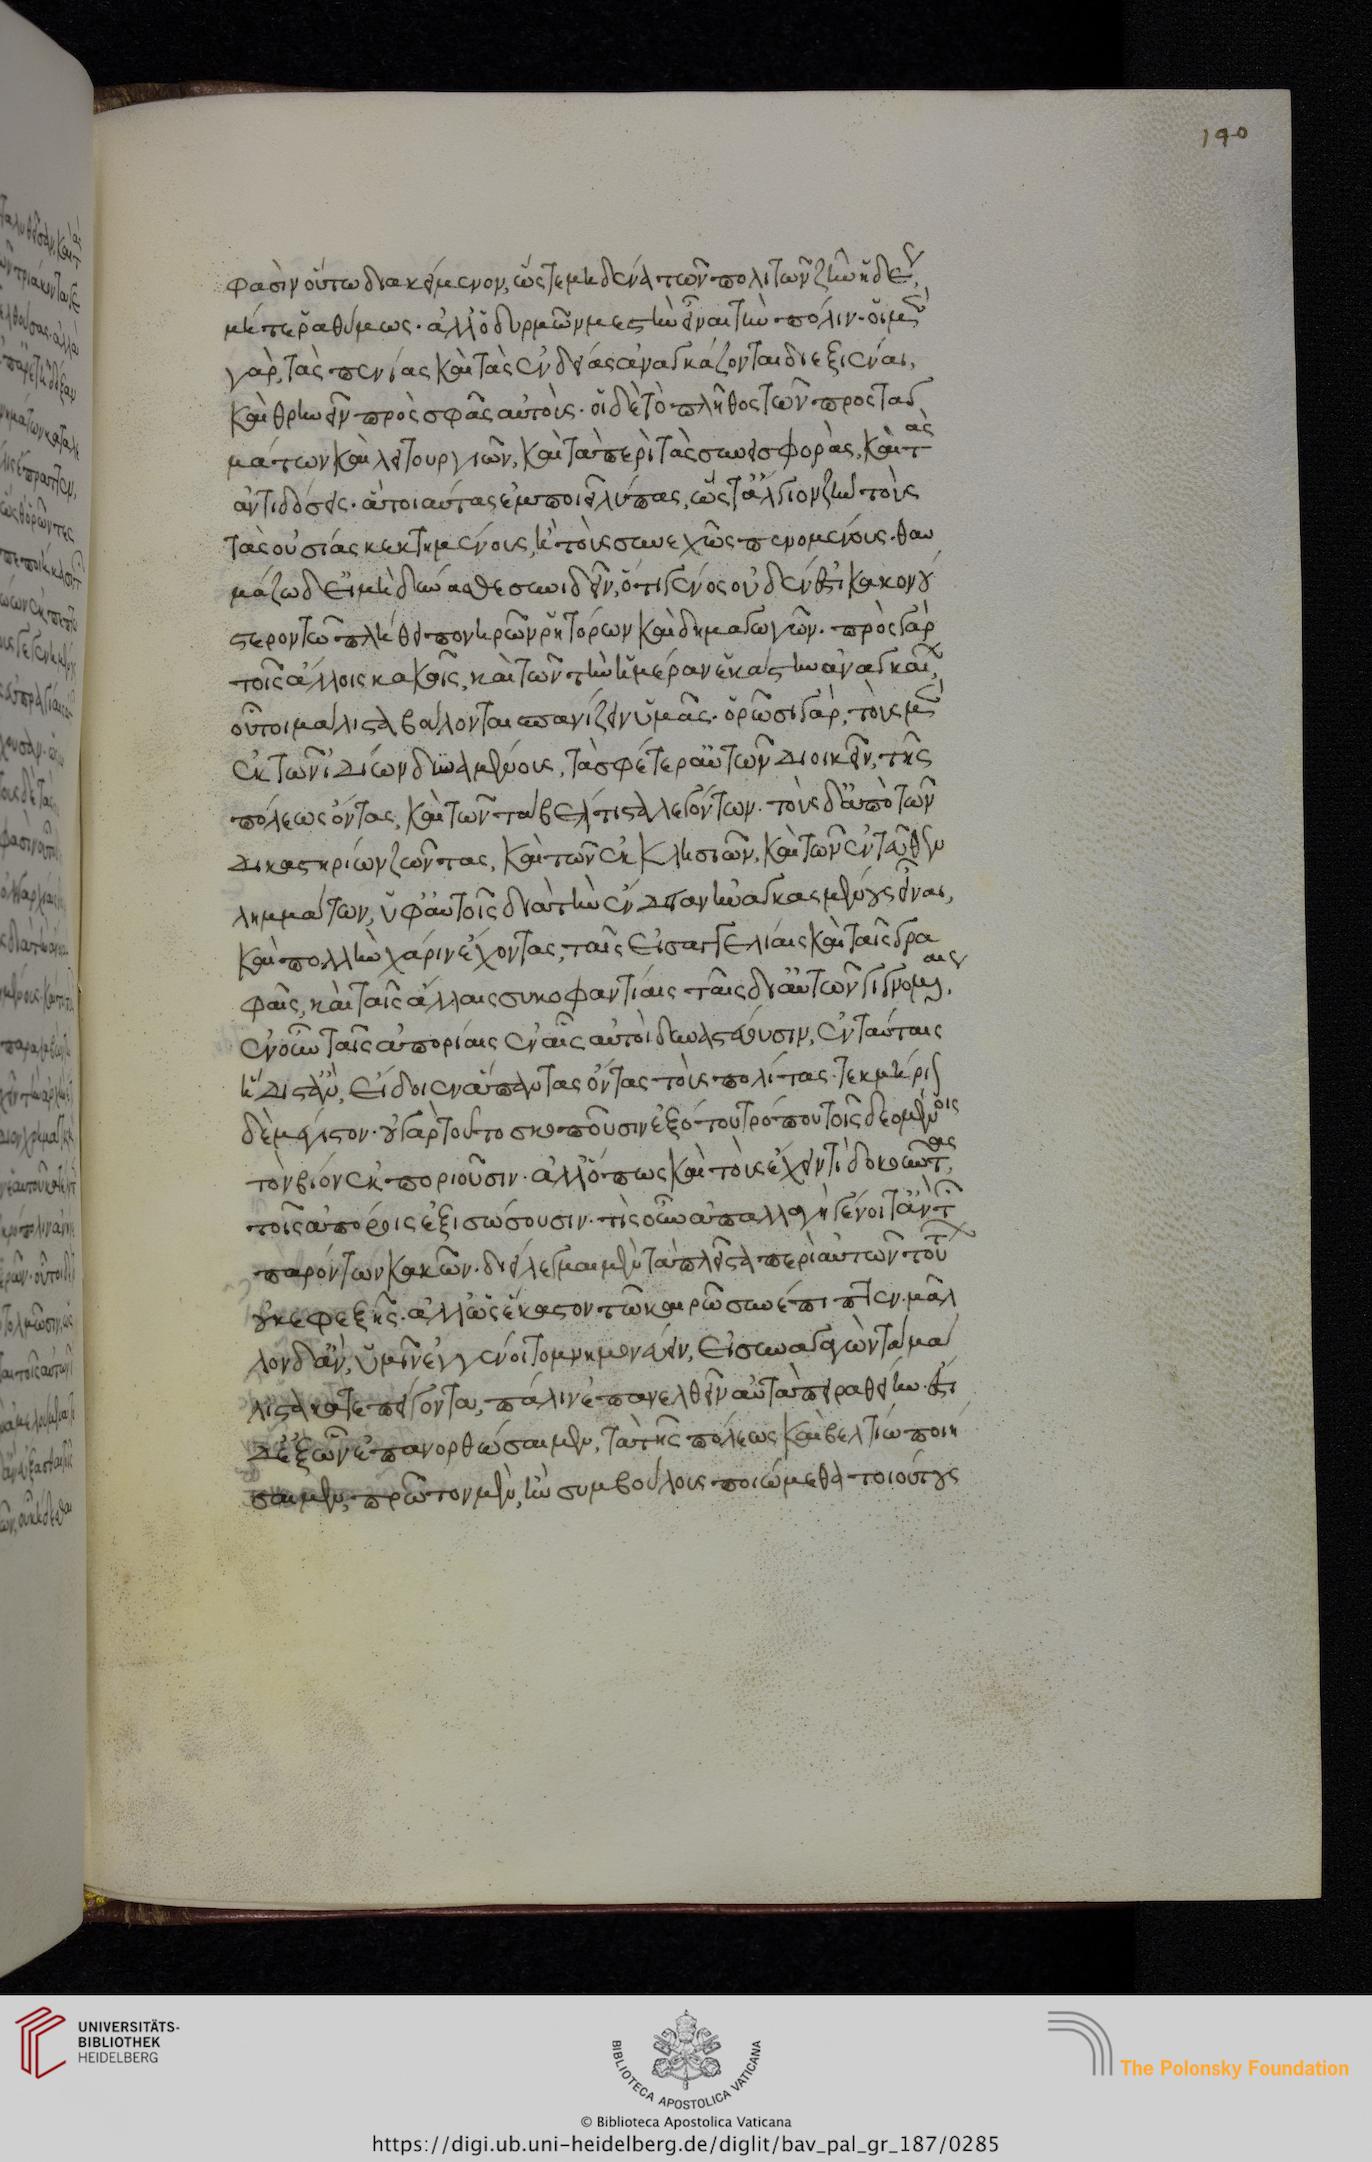 φασὶν οὕτω διακείμενον, ὥστε μηδένα τῶν πολιτῶν ζῆν ἡδέως,
μήτε ῥαθύμως· ἀλλ᾽ ὀδυρμῶν μεστὴν εἶναι τὴν πόλιν· οἱ μὲν
γὰρ, τὰς πενίας καὶ τὰς ἐνδείας ἀναγκάζονται διεξιέναι,
καὶ θρηνεῖν πρὸς σφᾶς αὐτούς· οἱ δὲ τὸ πλῆθος τῶν προσταγ
μάτων καὶ λειτουργιῶν, καὶ τὰ περὶ τὰς συνεισφορὰς, καὶ τὰς
ἀντιδόσεις· ἃ τοιαύτας ἐμποιεῖ λύπας, ὥστ᾽ ἄλγιον ζῆν τοὺς
τὰς οὐσίας κεκτημένους, ἢ τοὺς συνεχῶς πενομένους· θαυ
μάζω δ᾽ εἰ μὴ δύνασθε συνιδεῖν, ὅτι γένος οὐδέν ἐστι κακονού
στερον τῶ πλήθει πονηρῶν ῥητόρων καὶ δημαγωγῶν· πρὸς γὰρ
τοῖς ἄλλοις κακοῖς, καὶ τῶν τὴν ἡμέραν ἑκάστην ἀναγκαίων,
οὗτοι μάλιστα βούλονται σπανίζειν ὑμᾶς· ὁρῶσι γὰρ, τοὺς μὲν
ἐκ τῶν ἰδίων δυναμένους, τὰ σφέτερ᾽ αὐτῶν διοικεῖν, τῆς
πόλεως ὄντας, καὶ τῶν τὰ βέλτιστα λεγόντων· τοὺς δ᾽ ἀπὸ τῶν
δικαστηρίων ζῶντας, καὶ τῶν ἐκκλησιῶν, καὶ τῶν ἐντεῦθεν
λημμάτων, ὑφ᾽ αὑτοῖς διὰ τὴν ἔνδειαν ἠναγκασμένους εἶναι,
καὶ πολλὴν χάριν ἔχοντας, ταῖς εἰσαγγελίαις καὶ ταῖς γρα
φαῖς, καὶ ταῖς ἄλλαις συκοφαντίαις ταῖς δι᾽ αὐτῶν γιγνομέναις,
ἐν οὖν ταῖς ἀπορίαις ἐν αἷς αὐτοὶ δυναστεύουσιν, ἐν ταύταις
ἥδιστ᾽ ἂν, εἴδοιεν ἅπαντας ὄντας τοὺς πολίτας· τεκμήριον
δὲ μέγιστον· οὐ γὰρ τοῦτο σκοποῦσιν ἐξ ὅτου τρόπου τοῖς δεομένοις
τὸν βίον ἐκποριοῦσιν· ἀλλ᾽ ὅπως καὶ τοὺς ἔχειν τι δοκοῦντας,
τοῖς ἀπόροις ἐξισώσουσιν· τίς οὖν ἀπαλλαγὴ γένοιτ᾽ ἂν τῶν
παρόντων κακῶν· διείλεγμαι μὲν τὰ πλεῖστα περὶ αὐτῶν τούτων
οὐκ ἐφεξῆς· ἀλλ᾽ ὡς ἕκαστον τῶ καιρῶ συνέπιπτεν· μᾶλ
λον δ᾽ ἂν, ὑμῖν ἐγγένοιτο μνημονεύειν, εἰ συναγαγὼν τὰ μά
λιστα κατεπείγοντα, πάλιν ἐπανελθεῖν αὐτὰ πειραθείην· ἔστι
δ᾽ ἐξ ὧν ἐπανορθώσαιμεν, τὰ τῆς πόλεως καὶ βελτίω ποιή
σαιμεν, πρῶτον μὲν, ἢν συμβούλους ποιώμεθα τοιούτους
190
UNIVERSITÄTS-
BIBLIOTHEK
HEIDELBERG
BIBLIOTECA APOSTOLICA VATICANA
The Polonsky Foundation
© Biblioteca Apostolica Vaticana
https://digi.ub.uni-heidelberg.de/diglit/bav_pal_gr_187/0285